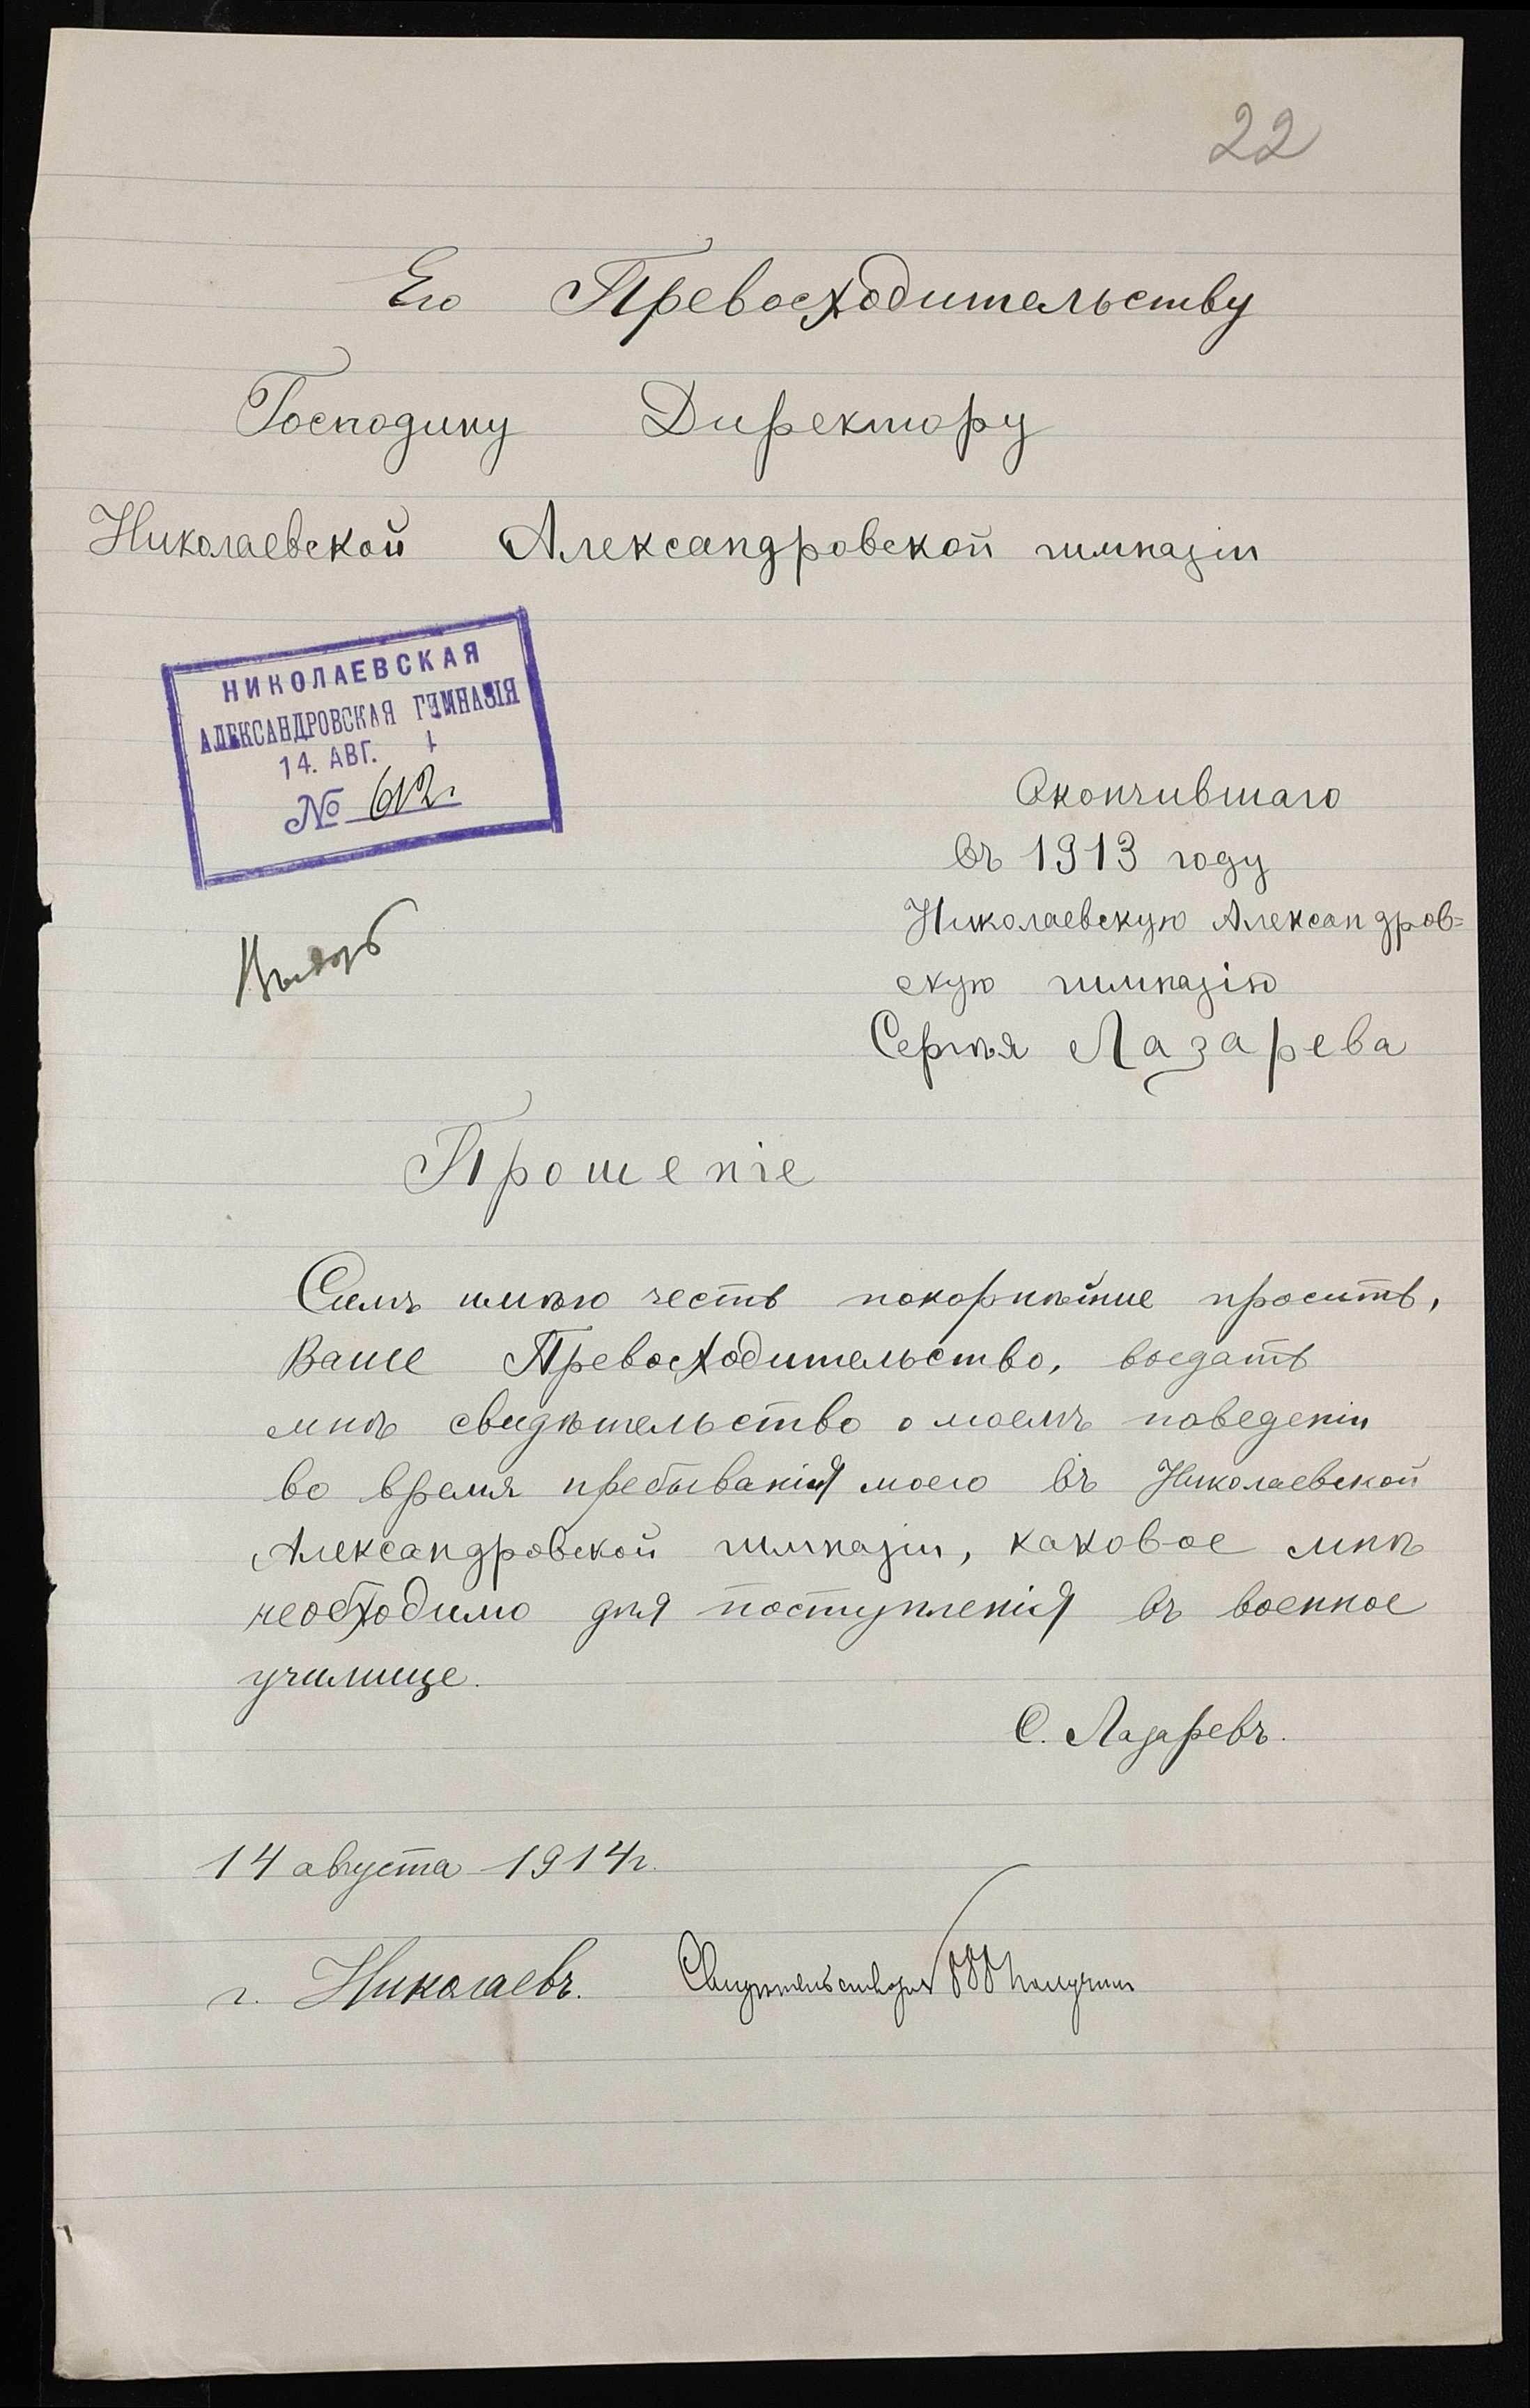 22
Его Превосходительству
Господину Директору
Николаевской Александровской гимназіи
НИКОЛАЕВСКАЯ
АЛЕКСАНДРОВСКАЯ ГИМНАЗІЯ
14. АВГ. 1
№ 612.
Окончившаго
въ 1913 году
Николаевскую Александров=
скую гимназію
Сергѣя Лазарева
Прошеніе
Симъ имѣю честь покорнѣйше просить,
Ваше Превосходительство, выдать
мнѣ свидѣтельство о моемъ поведеніи
во время пребыванія моего въ Николаевской
Александровской гимназіи, каковое мнѣ
необходимо для поступленія въ военное
училище.
С. Лазаревъ.
14 августа 1914 г.
г. Николаевъ.
получилъ